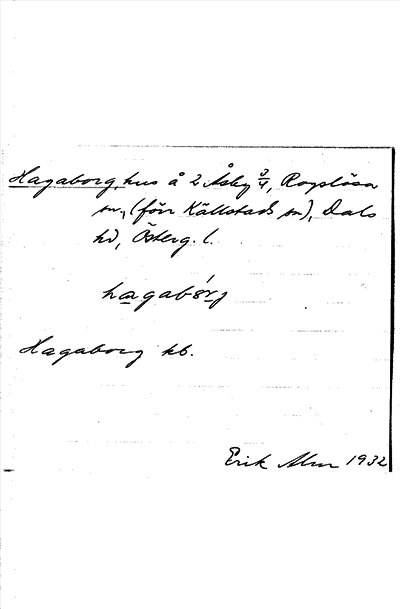 Hagaborg, hus å 2 Åsby 3/4, Rogslösa
sn, (förr Källstads sn), Dals
hd, Österg. l.
hagabórj
Hagaborg kb.
Erik Alm 1932